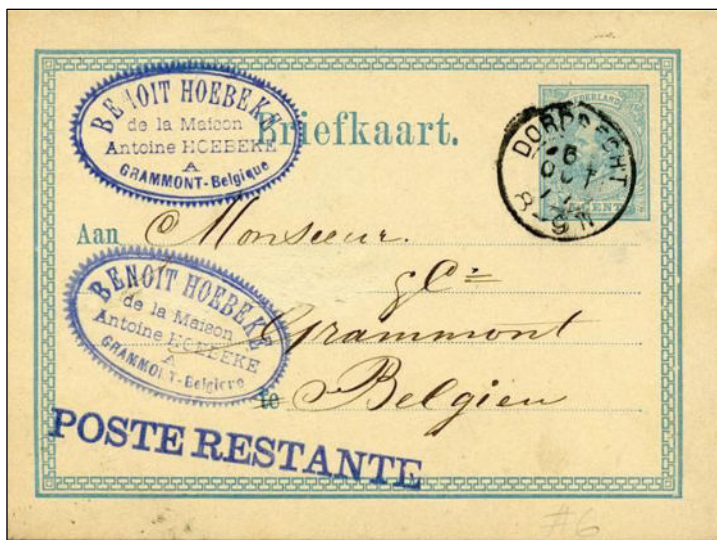 BENOIT HOEBEKE
de la Maison
Antoine HOEBEKE
A
GRAMMONT-Belgique
Briefkaart.
NEDERLAND
CENT
DORDRECHT
6
OCT
8-9N
Aan Monsieur.
& Cie
BENOIT HOEBEKE
de la Maison
Antoine HOEBEKE
A
GRAMMONT-Belgique
Grammont
te Belgien
POSTE RESTANTE
#6